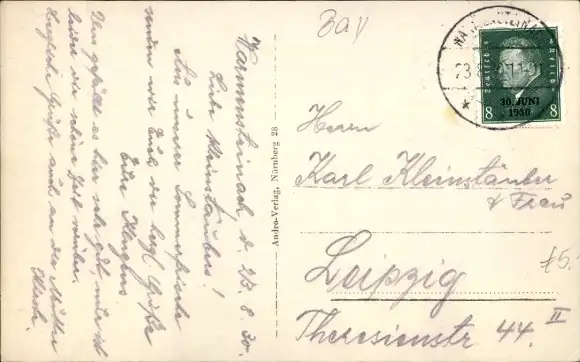 Warmensteinach, d. 23.8.30.
Liebe Kleinstäubers!
Aus unserer Sommerfrische
senden wir Euch die herzl. Grüße
Eure
Uns gefällt es hier sehr gut, nur ist
leider die schöne Zeit vorüber.
Herzliche Grüße auch an die Mutter
Bay
WARMENSTEINACH
23.8.
DEUTSCHES REICH
30. JUNI
1930
8 8
Herrn
Karl Kleinstäuber
& Frau
Leipzig
Theresienstr 44. II
£5.
Andro-Verlag, Nürnberg 28